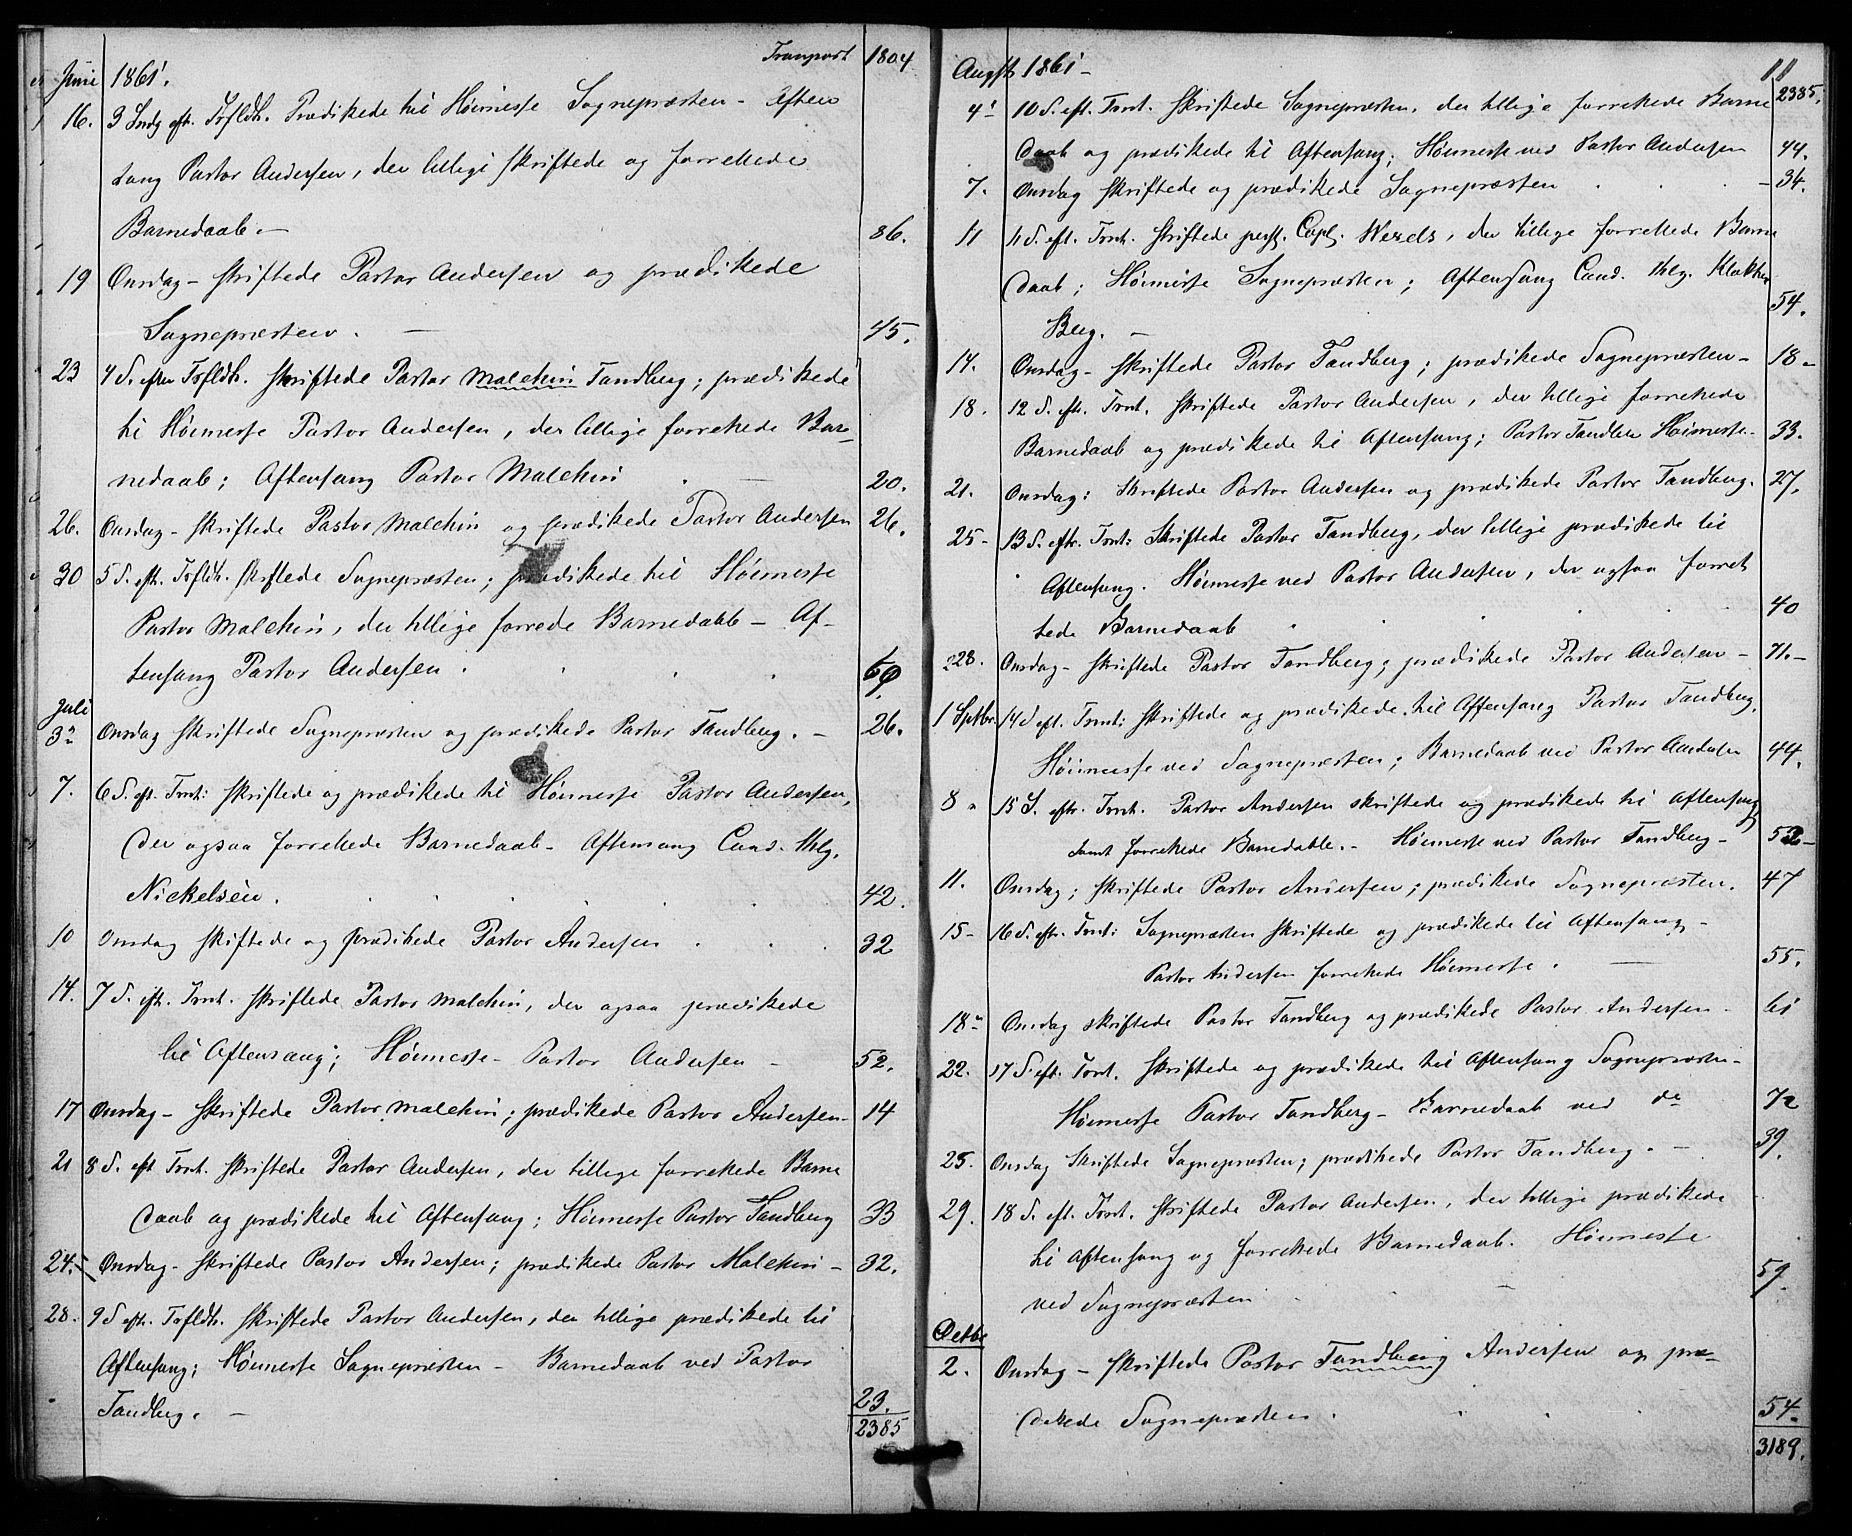 Transport 1804
Juni 1861.
16. 3 Søndg eft. Trfldh. Prædikede til Høimesse Sognepræsten - Aften
sang Pastor Andersen, der tillige skriftede og forrettede
Barnedaab. — 86.
19 Onsdag - skriftede Pastor Andersen og prædikede
Sognepræsten. — 45.
23 4 S. efter Trfldh. skriftede Pastor Malchin Tandberg; prædikede
til Høimesse Pastor Andersen, der tillige forrettede Bar-
nedaab; Aftensang Pastor Malchin . — 20.
26. Onsdag - skriftede Pastor Malchin og prædikede Pastor Andersen 26.
30 5 S. eft. Trfldh. skriftede Sognepræsten; prædikede til Høimesse
Pastor Malchin, der tillige forrede Barnedaab - Af-
tensang Pastor Andersen . . . . 69.
Juli
3. Onsdag skriftede Sognepræsten og prædikede Pastor Tandberg. — 26.
7. 6 S. eft. Trnt: skriftede og prædikede til Høimesse Pastor Andersen,
der ogsaa forrettede Barnedaab - Aftensang Cand. thlg.
Nickelsen. . . . . . 42.
10 Onsdag skiftede og prædikede Pastor Andersen . . . 32
14. 7 S. eft. Trnt. skriftede Pastor Malchin, der ogsaa prædikede
til Aftensang; Høimesse - Pastor Andersen - 52.
17 Onsdag - skriftede Pastor Malchin; prædikede Pastor Andersen - 14
21 8 S. eft Trnt. skriftede Pastor Andersen, der tillige forrettede Barne
daab og prædikede til Aftensang; Høimesse Pastor Tandberg 33
24. Onsdag - skriftede Pastor Andersen; prædikede Pastor Malchin - 32.
28. 9 S eft. Trfldh. skriftede Pastor Andersen, der tillige prædikede til
Aftensang; Høimesse Sognepræsten - Barnedaab ved Pastor
Tandberg. — 23.
2385
11
Augst 1861 - 2385.
4 10 S. eft. Trnt. skriftede Sognepræsten, der tillige forrettede Barne
daab og prædikede til Aftensang; Høimesse ved Pastor Andersen 44.
7. Onsdag skriftede og prædikede Sognepræsten . . . - 34.
11 11 S. eft. Trnt. skriftede pers. Capl. Wexels, der tillige forrettede Barne
daab; Høimesse Sognepræsten; Aftensang Cand. thlg. Klokker
Berg. — 54.
14. Onsdag - skriftede Pastor Tandberg; prædikede Sognepræsten - 18 -
18. 12 S. eft. Trnt. skriftede Pastor Andersen, der tillige forrettede
Barnedaab og prædikede til Aftensang; Pastor Tandberg Høimesse - 33.
21. Onsdag: Skriftede Pastor Andersen og prædikede Pastor Tandberg. 27.
25 - 13 S. eftr. Trnt: Skriftede Pastor Tandberg, der tillige prædikede til
Aftensang. Høimesse ved Pastor Andersen, der ogsaa forret
tede Barnedaab . . . . 40
28. Onsdag - skriftede Pastor Tandberg; prædikede Pastor Andersen - 71. -
1 Sptbr. 14 S eft. Trnt: skriftede og prædikede til Aftensang Pastor Tandberg.
Høimesse ved Sognepræsten; Barnedaab ved Pastor Andersen 44.
8 15 S. eftr. Trnt. Pastor Andersen skriftede og prædikede til Aftensang
samt forrettede Barnedable. - Høimesse ved Pastor Tandberg - 52 -
11. Onsdag; skriftede Pastor Andersen; prædikede Sognepræsten. 47
15 - 16 S. eftr. Trnt: Sognepræsten skriftede og prædikede til Aftensang -
Pastor Andersen forrettede Høimesse. — 55.
18 Onsdag skriftede Pastor Tandberg og prædikede Pastor Andersen - 61
22. 17 S. eft. Trnt. skriftede og prædikede til Aftensang Sognepræsten -
Høimesse Pastor Tandberg - Barnedaab ved do 72
25. Onsdag Skriftede Sognepræsten; prædikede Pastor Tandberg. — 39.
29. 18 S. eft. Trnt. skriftede Pastor Andersen, der tillige prædikede
til Aftensang og forrettede Barnedaab. Høimesse
ved Sognepræsten . - 59.
Octbr
2. Onsdag - skriftede Pastor Tandberg Andersen og præ-
dikede Sognepræsten . . . 54.
3189.